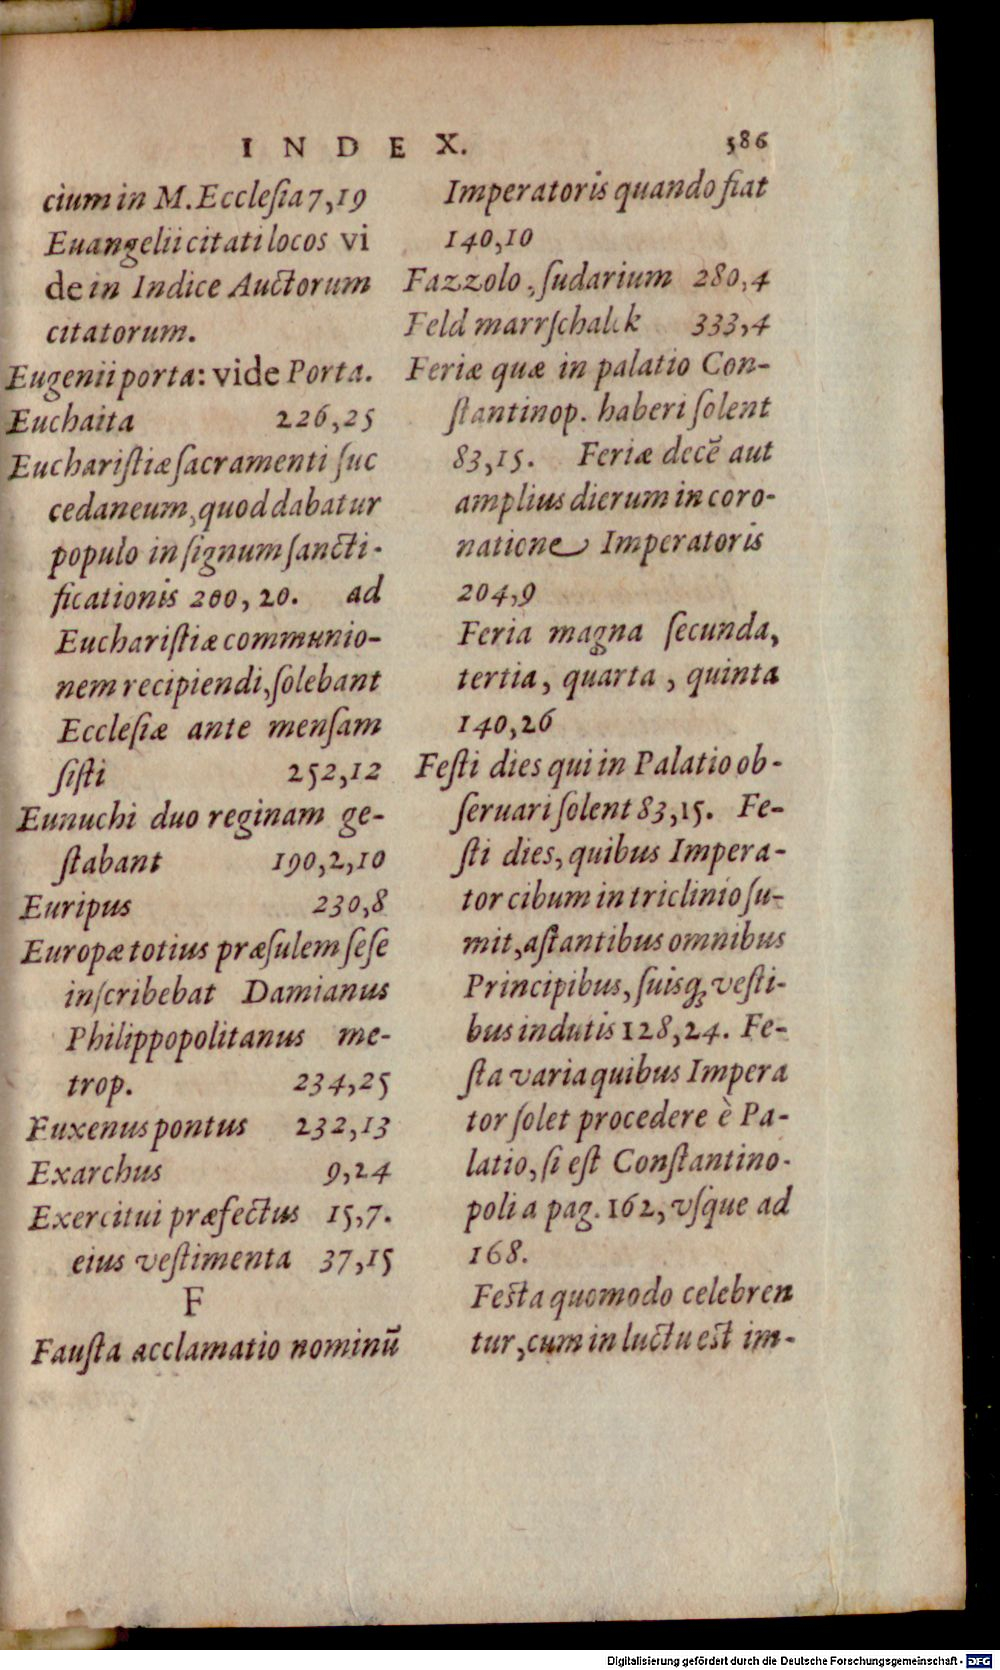 INDEX. 386
cium in M. Ecclesia 7,19
Euangelii citati locos vi
de in Indice Auctorum
citatorum.
Eugenii porta: vide Porta.
Euchaita 226,25
Euchariſtiæ ſacramenti ſuc
cedaneum, quod dabatur
populo in ſignum ſancti-
ficationis 200, 20. ad
Euchariſtiæ communio-
nem recipiendi, ſolebant
Eccleſiæ ante menſam
ſiſti 252,12
Eunuchi duo reginam ge-
ſtabant 190,2,10
Euripus 230,8
Europæ totius præſulem ſeſe
inſcribebat Damianus
Philippopolitanus me-
trop. 234,25
Euxenus pontus 232,13
Exarchus 9,24
Exercitui præfectus 15,7.
eius veſtimenta 37,15
F
Fauſta acclamatio nominū
Imperatoris quando fiat
140,10
Fazzolo, ſudarium 280,4
Feld marrſchalck 333,4
Feriæ quæ in palatio Con-
ſtantinop. haberi ſolent
83,15. Feriæ decē aut
amplius dierum in coro-
natione Imperatoris
204,9
Feria magna ſecunda,
tertia, quarta, quinta
140,26
Feſti dies qui in Palatio ob-
ſeruari ſolent 83,15. Fe-
ſti dies, quibus Impera-
tor cibum in triclinio ſu-
mit, aſtantibus omnibus
Principibus, ſuisq; veſti-
bus indutis 128,24. Fe-
ſta varia quibus Impera
tor ſolet procedere è Pa-
latio, ſi eſt Conſtantino-
poli a pag. 162, vſque ad
168.
Feſta quomodo celebren
tur, cum in luctu eſt im-
Digitalisierung gefördert durch die Deutsche Forschungsgemeinschaft - DFG